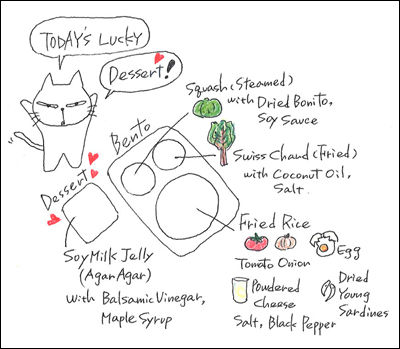 TODAY'S LUCKY
Dessert!
Squash (Steamed)
with Dried Bonito,
Soy Sauce
Bento
Swiss Chard (Fried)
with Coconut Oil,
Salt.
Dessert
Fried Rice
Tomato Onion
Egg
Powdered
Cheese
Dried
Young
Sardines
Salt, Black Pepper
Soy Milk Jelly
(Agar Agar)
with Balsamic Vinegar,
Maple Syrup